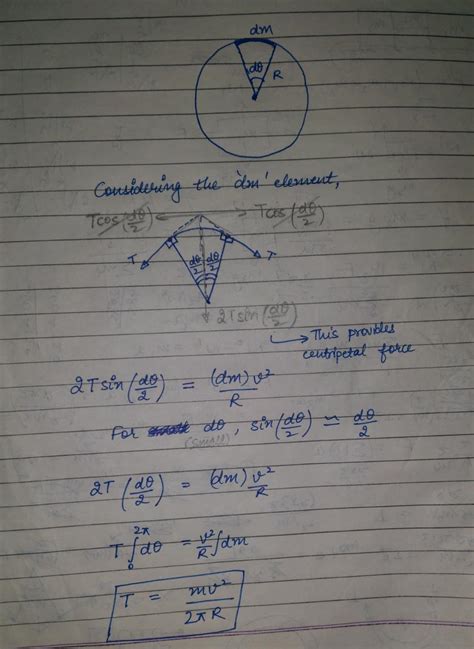 dm
dθ
R
Considering the 'dm' element,
Tcos(dθ/2) Tcos(dθ/2)
T dθ/2 dθ/2 T
2Tsin(dθ/2)
↳ This provides
centripetal force
2Tsin(dθ/2) = (dm)v²/R
For dθ, sin(dθ/2) ≃ dθ/2
(small)
2T(dθ/2) = (dm)v²/R
T ∫₀^2π dθ = v²/R ∫dm
T = mv²/2πR